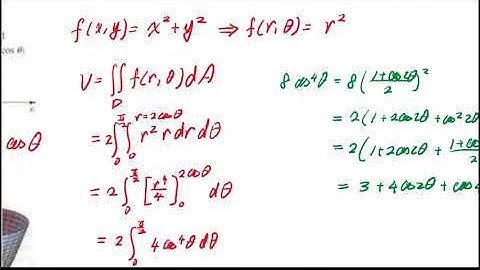 f(x,y) = x² + y² ⇒ f(r,θ) = r²
cos θ)
x
V = ∬_D f(r,θ) dA
cos θ
= 2 ∫_0^{π/2} ∫_0^{r=2cosθ} r² r dr dθ
= 2 ∫_0^{π/2} [r⁴/4]_0^{2cosθ} dθ
= 2 ∫_0^{π/2} 4cos⁴θ dθ
8 cos⁴θ = 8((1+cos2θ)/2)²
= 2(1 + 2cos2θ + cos²2θ
= 2(1 + 2cos2θ + (1+cos)/2
= 3 + 4cos2θ + cos